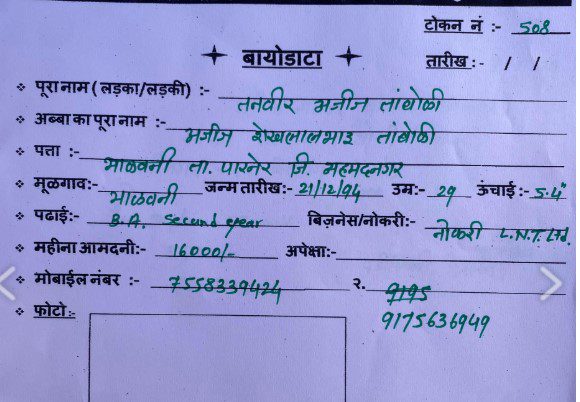 टोकन नं :- 508
बायोडाटा
तारीख :- / /
पूरा नाम ( लड़का/लड़की) :- तनवीर अजीज तांबोळी
अब्बा का पूरा नाम :- अजीज शेखलालभाइ तांबोळी
पत्ता :- भाळवनी ता. पारनेर जि. अहमदनगर
मूळगाव:- भाळवनी जन्म तारीख:- 21/12/94 उम्र:- 29 ऊंचाई :- 5.4"
पढाई:- B.A. second year बिज़नेस/नोकरी:- नोकरी L.N.T. Ltd.
महीना आमदनी:- 16000/- अपेक्षा:-
मोबाईल नंबर :- 7558339424 २. 9195
9175636949
फोटो :-